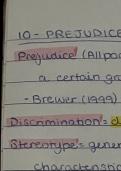 10 - PREJUDICE
Prejudice (Allpo
a certain gro
- Brewer (1999)
Discrimination = d
Stereotype = gener
characteristic